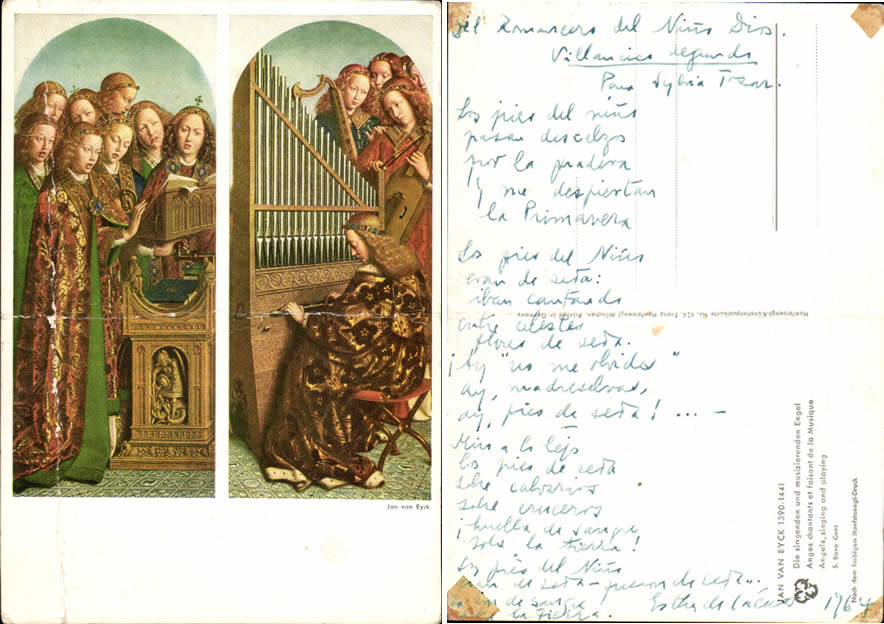 Jan van Eyck
del Romancero del Niño Dios.
Villancico segundo
Para Sylvia Tozar.
Los pies del niño
pasan descalzos
por la pradera
y me despiertan
la Primavera
Los pies del Niño
eran de seda:
iban cantando
entre celestes
flores de seda.
¡Ay "no me olvides"
ay, madreselvas,
ay, pies de seda! ... –
Miro a lo lejos
los pies de seda
sobre calvarios
sobre cruceros
¡huella de sangre
sobre la tierra!
Los pies del Niño
eran de seda – fueron de seda...
de sangre
la tierra.
Esther de Cáceres 1964
Hanfstaengl-Künstlerpostkarte Nr. 124. Franz Hanfstaengl München. Printed in Germany
JAN VAN EYCK 1390-1441
Die singenden und musizierenden Engel
Anges chantants et faisant de la Musique
Angels, singing and playing
S. Bavo Gent
Nach dem farbigen Hanfstaengl-Druck